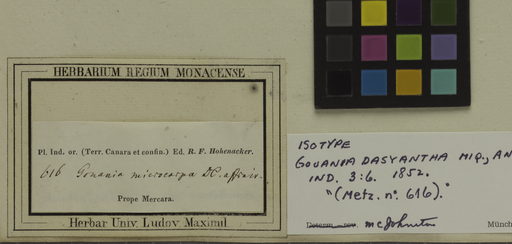 HERBARIUM REGIUM MONACENSE
Pl. Ind. or. (Terr. Canara et confin.) Ed. R. F. Hohenacker.
616 Gouania microcarpa DC. affinis.
Prope Mercara.
Herbar Univ. Ludov. Maximil
ISOTYPE
GOUANIA DASYANTHA MIQ., AN
IND. 3:6. 1852.
"(Metz. no. 616)."
McJohnston
Münch